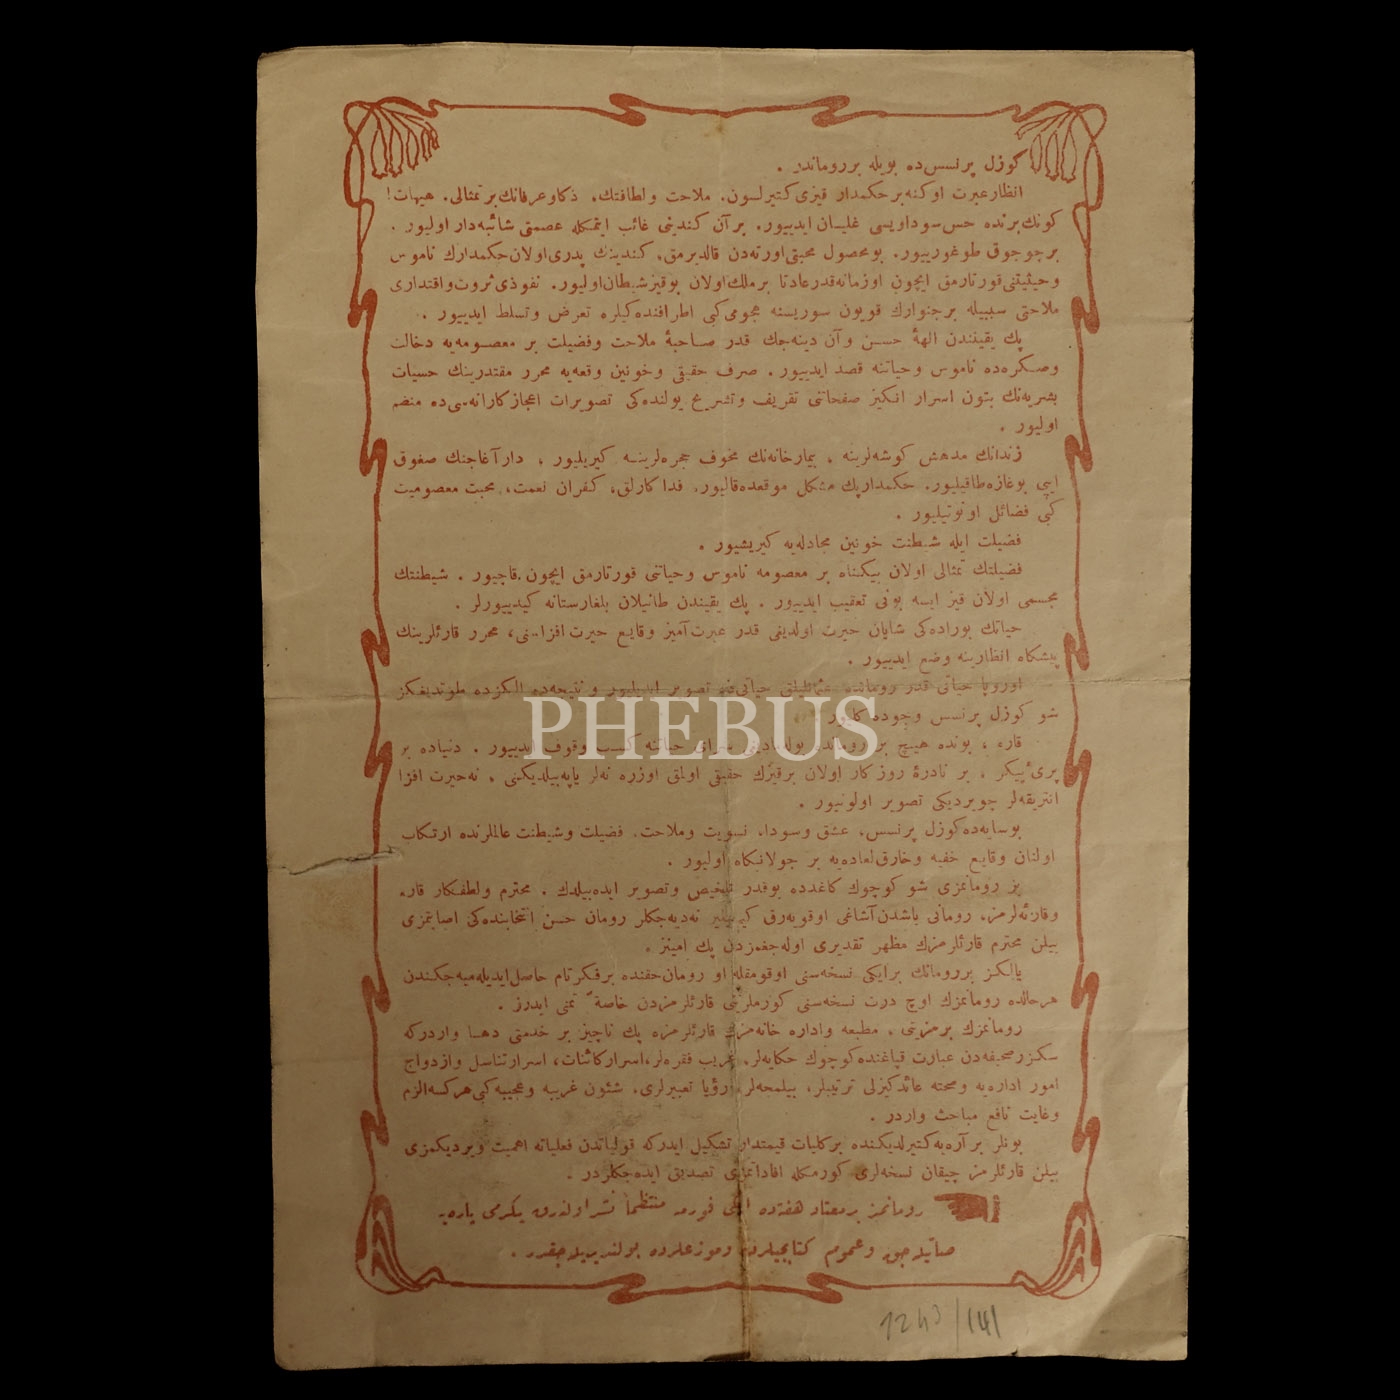 كوزل پرنسس ده بويله بر روماندر .
انظار عبرت اوكنه بر حكمدار قيزى كتيرلسون. ملاحت ولطافتك، ذكا وعرفانك بر تمثالى. هيهات!
كونك برنده حس سوداويسى غليان ايدييور. بر آن كندينى غائب ايتمكله عصمتى شائبه دار اوليور .
بر چوجوق طوغورييور. بو محصول محبتى اورته دن قالديرمق، كندينك پدرى اولان حكمدارك ناموس
وحيثيتنى قورتارمق ايچون اوزمانه قدر عادتا بر ملك اولان بو قيز شيطان اوليور. نفوذى ثروت واقتدارى
ملاحتى سببيله بر جنوارك قويون سوريسنه هجومى كبى اطرافنده كيلره تعرض وتسلط ايدييور .
پك يقيندن الههٔ حسن وآن دينه جك قدر صاحبهٔ ملاحت وفضيلت بر معصومه يه دخالت
وصكره ده ناموس وحياتنه قصد ايدييور . صرف حقيقى وخونين وقعه يه محرر مقتدرينك حسيات
بشريه نك بتون اسرار انكيز صفحاتنى تعريف وتشريح يولنده كى تصويرات اعجازكارانه سى ده منضم
اوليور .
زندانك مدهش كوشه لرينه ، بيمارخانه نك مخوف حجره لرينه كيريليور . دار آغاجنك صغوق
ايپى بوغازه طاقيليور. حكمدار پك مشكل موقعده قاليور. فداكارلق، كفران نعمت، محبت معصوميت
كبى فضائل اونوتيليور .
فضيلت ايله شيطنت خونين مجادله يه كيريشيور .
فضيلتك تمثالى اولان بيكناه بر معصومه ناموس وحياتنى قورتارمق ايچون قاچيور . شيطنتك
مجسمى اولان قيز ايسه بونى تعقيب ايدييور . پك يقيندن طانيلان بلغارستانه كيدييورلر .
حياتك بوراده كى شايان حيرت اولديغى قدر عبرت آميز وقايع حيرت افزاسنى، محرر قارئلرينك
پيشكاه انظارينه وضع ايدييور .
اوروپا حياتى قدر رومانده عثمانليلق حياتى ده تصوير ايديليور ونتيجه ده الكزده طوتديغكز
شو كوزل پرنسس وجوده كليور .
قارء ، بونده هيچ بر رومانده بولمديغى سراى حياتنه كسب وقوف ايدييور . دنياده بر
پرى پيكر ، بر نادرهٔ روزكار اولان بر قيزك حقيقى اولمق اوزره نه لر ياپه بيلديكنى . نه حيرت افزا
انتريقه لر چويرديكى تصوير اولونيور .
بو سايه ده كوزل پرنسس، عشق وسودا، نسويت وملاحت، فضيلت وشيطنت عالملرنده ارتكاب
اولنان وقايع خفيه وخارق العاده يه بر جولانكاه اوليور .
بز رومانمزى شو كوچوك كاغدده بوقدر تلخيص وتصوير ايده بيلدك . محترم ولطفكار قارء
وقارئه لرمز، رومانى باشدن آشاغى اوقويه رق نه ديه جكلر رومان حسن انتخابنده كى اصابتمزى
بيلن محترم قارئلرمزك مظهر تقديرى اوله جغمزدن پك امينز .
يالكز بر رومانك بر ايكى نسخه سنى اوقومقله او رومان حقنده بر فكر تام حاصل ايديله ميه جكندن
هر حالده رومانمزك اوچ درت نسخه سنى كورملرينى قارئلرمزدن خاصةً تمنى ايدرز .
رومانمزك بر مزيتى . مطبعه واداره خانه مزك قارئلرمزه پك ناچيز بر خدمتى دها واردركه
سكز صحيفه دن عبارت قپاغنده كوچوك حكايه لر، غريب فقره لر، اسرار كائنات، اسرار تناسل وازدواج
امور اداره يه وصحته عائد كيزلى ترتيبلر، بيلمجه لر، رؤيا تعبيرلرى، شئون غريبه وعجيبه كبى هركسه الزم
وغايت نافع مباحث واردر .
بونلر بر آره يه كتيرلديكنده بر كليات قيمتدار تشكيل ايدركه قولياتدن فعلياته اهميت ويرديكمزى
بيلن قارئلرمز چيقان نسخه لرى كورمكله افاداتمزى تصديق ايده جكلردر .
رومانمز بر معتاد هفته ده ايكى فورمه منتظماً نشر اولنه رق يكرمى پاره يه
صاتيله جق وعموم كتابجيلرده وموزعلرده بولنديريله جقدر .
PHEBUS
1243/141